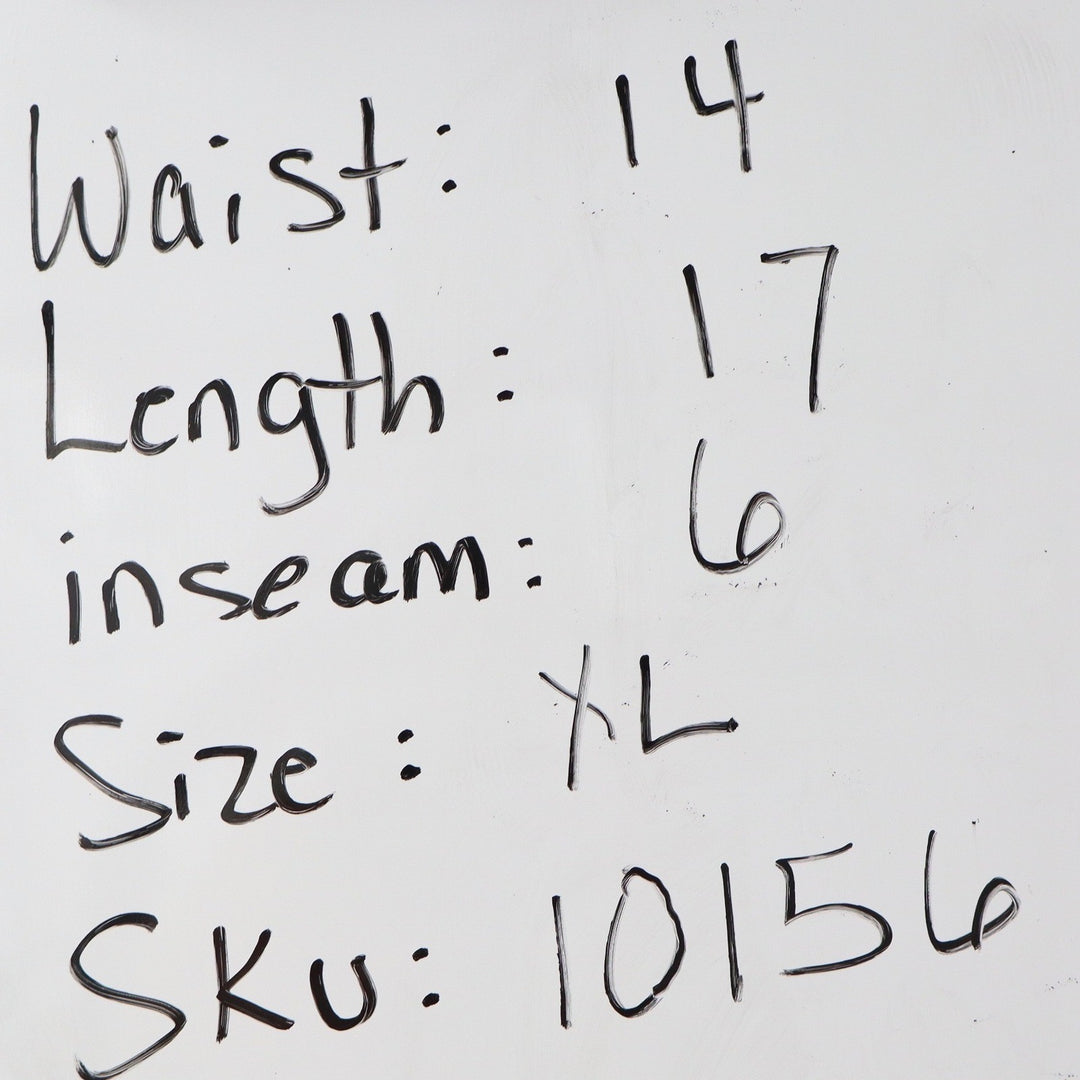 Waist: 14
Length: 17
inseam: 6
Size: XL
SKU: 10156